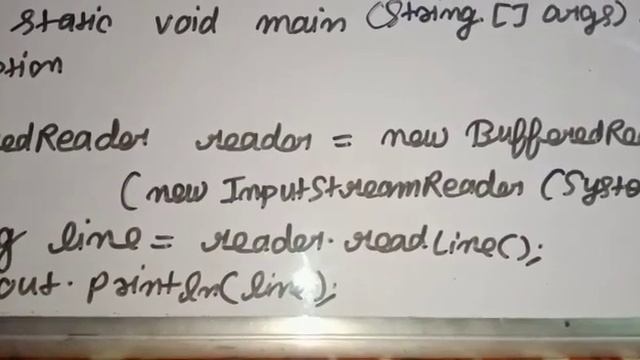 static void main (String [] args)
ption
edReader reader = new BufferedRe
(new InputStreamReader (Syste
g line = reader.readLine();
out.println(line);